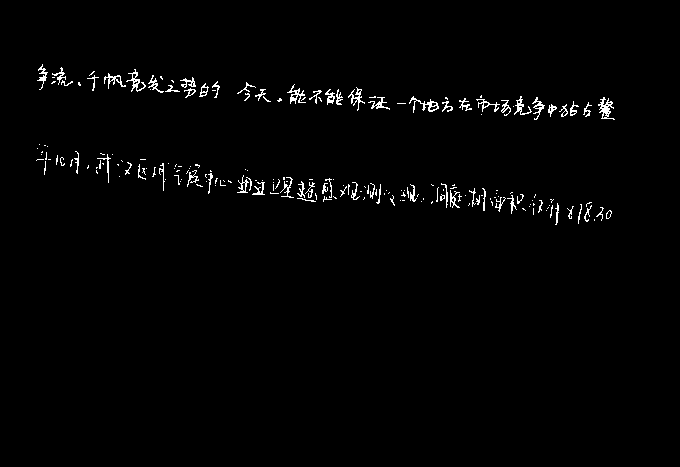 争流、千帆竞发之势的今天,能不能保证一个地方在市场竞争中独占鳌
年10月,武汉区域气候中心通过卫星遥感观测发现,洞庭湖面积仅有878.30